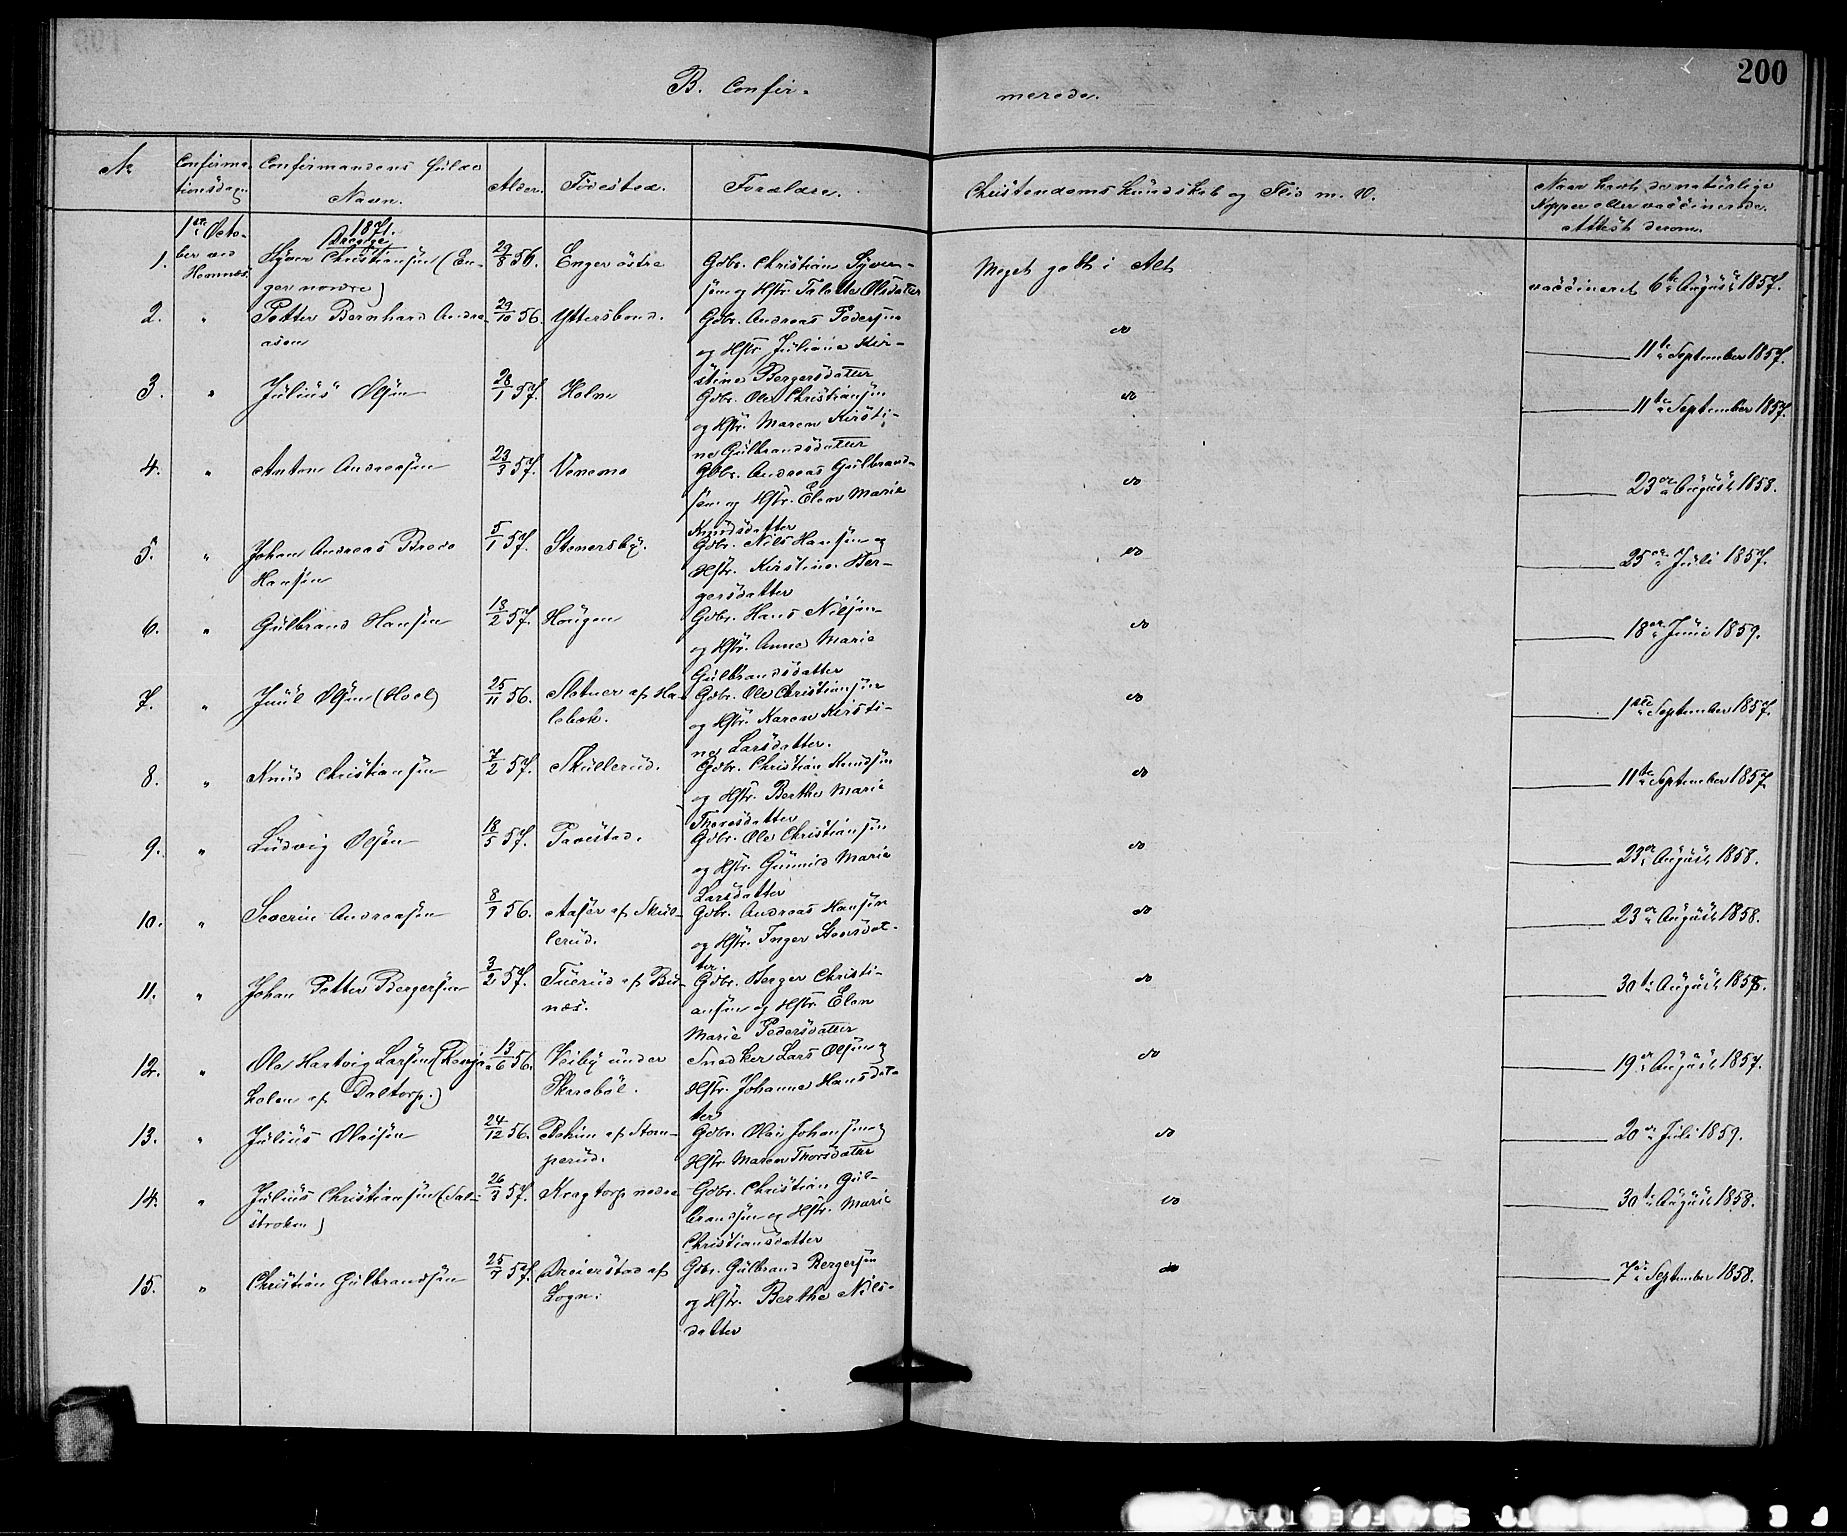 200
B. Confir- merede.
No
Confirmationsdagen
Confirmandens fulde Navn.
Alder.
Fødested.
Forældre.
Christendoms Kundskab og Flid m. V.
Naar havt de naturlige Kopper eller vaccinerede. Attest derom.
1ste October ved Hemnæs
1871.
Drenge
1. Syver Christiansen (Enger nordre) 29/8 56. Enger østre Gdbr. Christian Syversøn og Hstr. Olsdatter Meget godt i Alt vaccineret 6te August 1857.
2. " Petter Bernhard Andreasen 29/10 56. Yttersbond. Gdbr. Andreas Pedersen og Hstr. Juliane Kirstine Bergersdatter do 11te September 1857.
3. " Julius Olsen 28/1 57. Holm Gdbr. Ole Christiansøn og Hstr. Maren Kirstine Gulbrandsdatter do 11te September 1857.
4. " Anton Andreasøn 23/3 57. Venemo Gdbr. Andreas Gulbrandsøn og Hstr. Elen Marie Knudsdatter do 23de August 1858.
5. " Johan Andreas Brede Hansøn 5/1 57. Stenersby. Gdbr. Nils Hansøn og Hstr. Kirstine Bergersdatter do 25de Juli 1857.
6. " Gulbrand Hansøn 13/2 57. Haugen Gdbr. Hans Nilsøn og Hstr. Anne Marie Gulbrandsdatter do 18de Juni 1859.
7. " Juul Olsøn (Hoel) 25/11 56. af Gdbr. Ole Christiansøn og Hstr. Karen Kirstine Larsdatter. do 1ste September 1857.
8. " Knud Christiansøn 7/2 57. Skullerud. Gdbr. Christian Knudsøn og Hstr. Berthe Marie Thoresdatter do 11te September 1857
9. " Ludvig Olsøn 18/5 57. Tavestad. Gdbr. Ole Christiansøn og Hstr. Gunnild Marie Larsdatter do 23de August 1858.
10. " Severin Andreasøn 8/9 56. Aasør af Skullerud. Gdbr. Andreas Hansøn og Hstr. Inger Stensdatter. do 23de August 1858.
11. " Johan Petter Bergersøn 3/2 57. Tuerud af Bunæs. Gdbr. Berger Christiansøn og Hstr. Elen Marie Pedersdatter do 30te August 1858.
12. " Ole Hartvig Larsøn (af Daltorp.) 13/6 56. Veiby under Skarabøl. Snedker Lars Olsøn og Hstr. Johanne Hansdatter do 19de August 1857.
13. " Julius Olaisøn 24/12 56. af Stomperud. Gdbr. Olai Johansøn og Hstr. Maren Thorsdatter do 20de Juli 1859.
14. " Julius Christiansøn 26/3 57. Kragtorp nedre Gdbr. Christian Gulbrandsøn og Hstr. Marie Christiansdatter do 30te August 1858.
15. " Christian Gulbrandsøn 25/9 57. Dreierstad af Sogn. Gdbr. Gulbrand Bergersøn og Hstr. Berthe Nilsdatter do 7de September 1858.